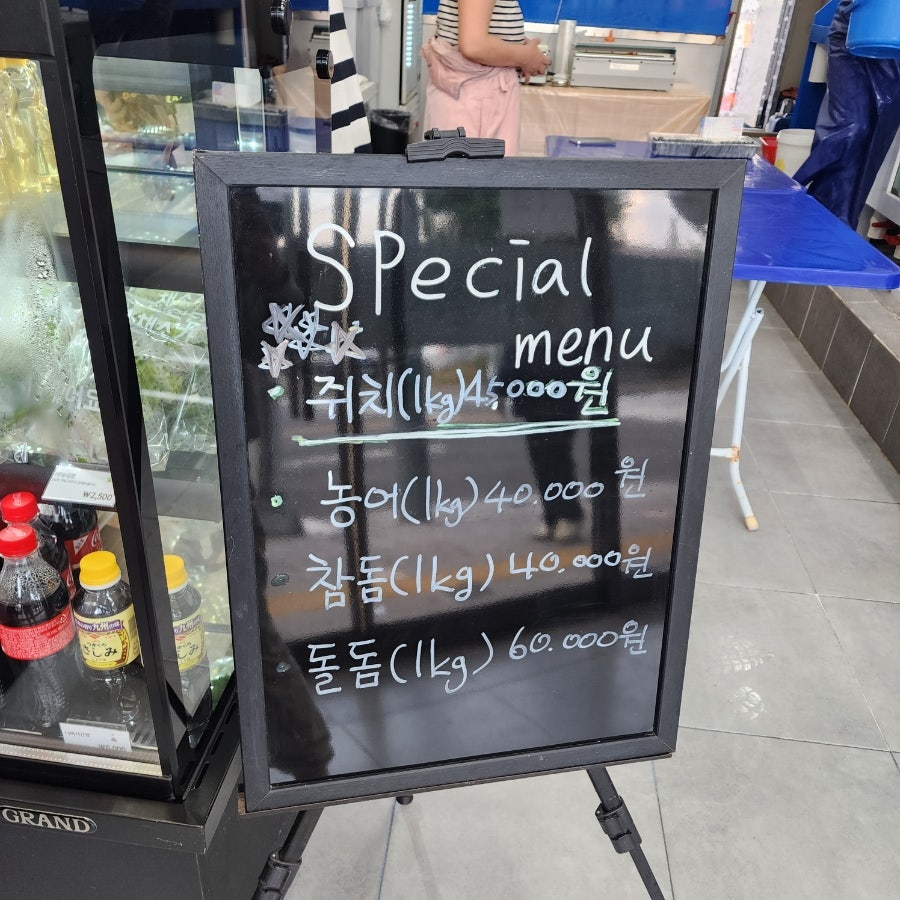 SPecial
menu
쥐치(1kg)45,000원
농어(1kg) 40.000원
참돔(1kg) 40.000원
돌돔(1kg) 60.000원
₩2,500
さしみ
GRAND